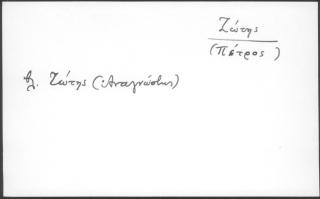 Ζώτης
(Πέτρος)
βλ. Ζώτης (: Αναγνώστης)